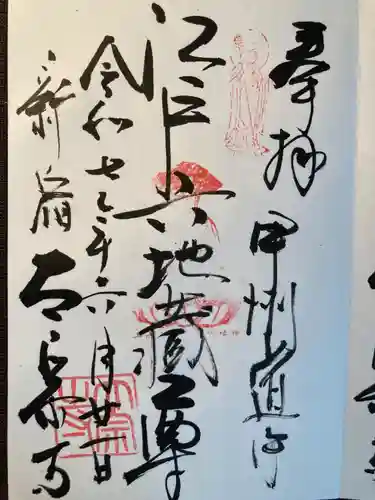 奉拝
甲州道中
江戸六地蔵尊
令和七年六月廿一日
新宿
太宗寺